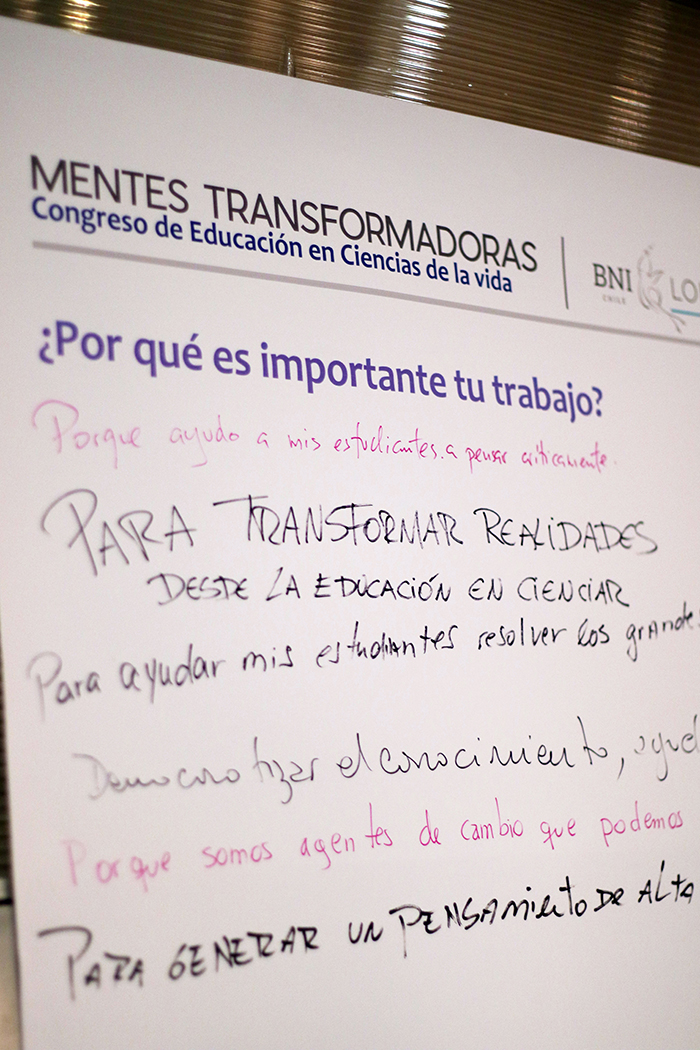 MENTES TRANSFORMADORAS
Congreso de Educación en Ciencias de la vida
BNI
CHILE
LO
¿Por qué es importante tu trabajo?
Porque ayudo a mis estudiantes a pensar críticamente.
PARA TRANSFORMAR REALIDADES
DESDE LA EDUCACIÓN EN CIENCIAR
Para ayudar mis estudiantes resolver los grande
Democratizar el conocimiento, ayud
Porque somos agentes de cambio que podemos
PARA GENERAR UN PENSAMIENTO DE ALTA